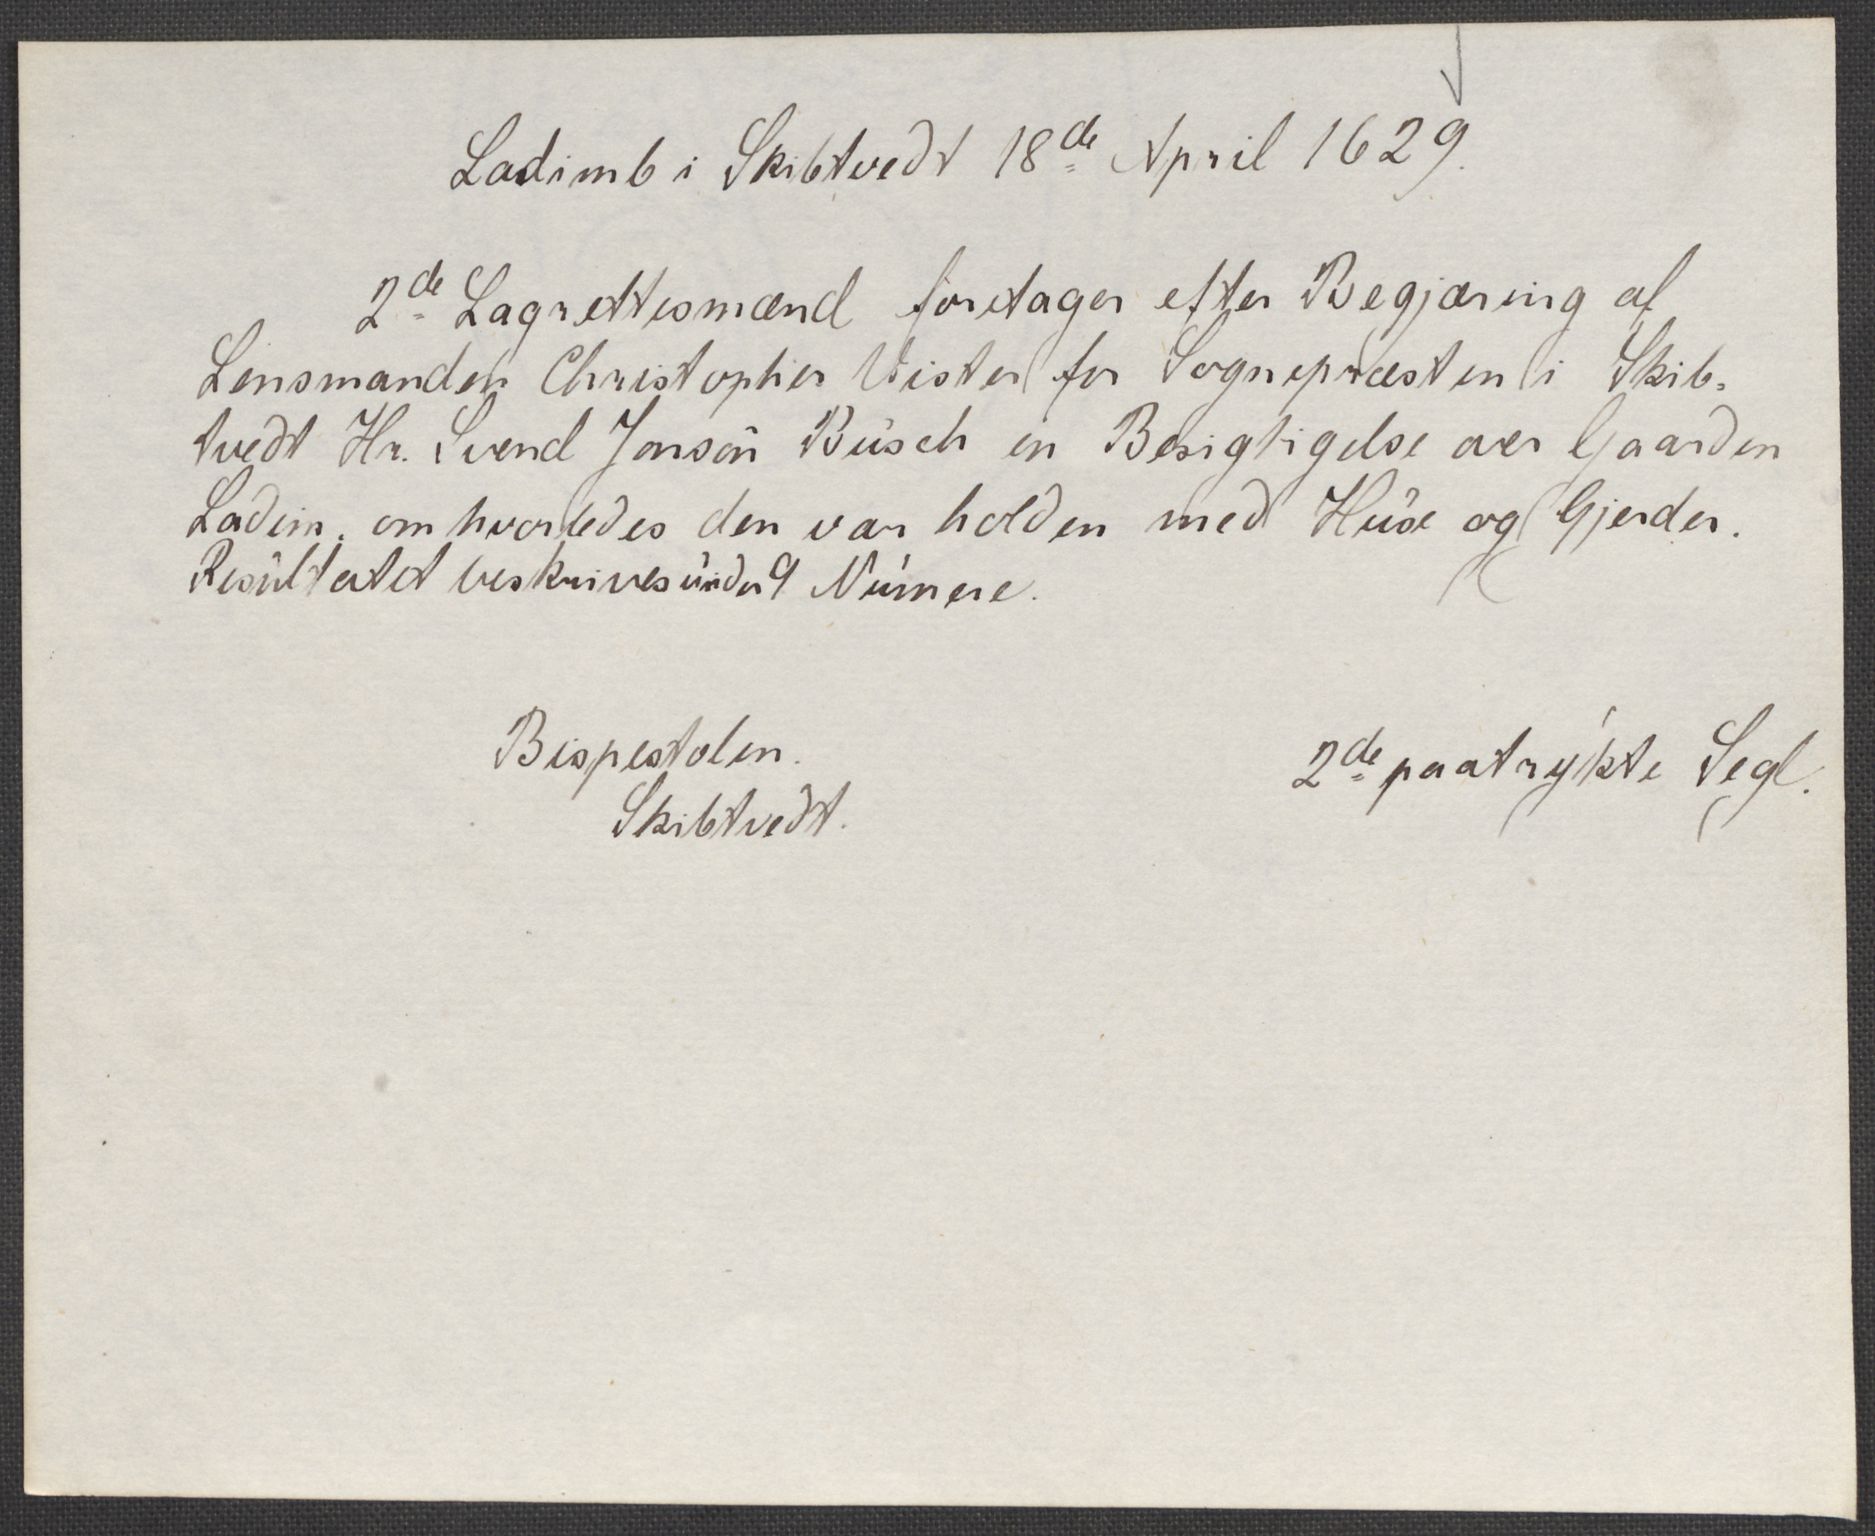 Ladimb i Skibtvedt 18de April 1629.
2de Lagrettesmænd foretager efter Begjæring af
Lensmanden Christopher Vister for Sognepræsten i Skib-
tvedt Hr. Svend Jonsøn Busch en Besigtigelse over Gaarden
Ladim, om hvorledes den var holden med Huse og Gjerder.
Resultatet beskrives under 9 Numere.
Bispestolen.
Skibtvedt.
2de paatrykte Segl.